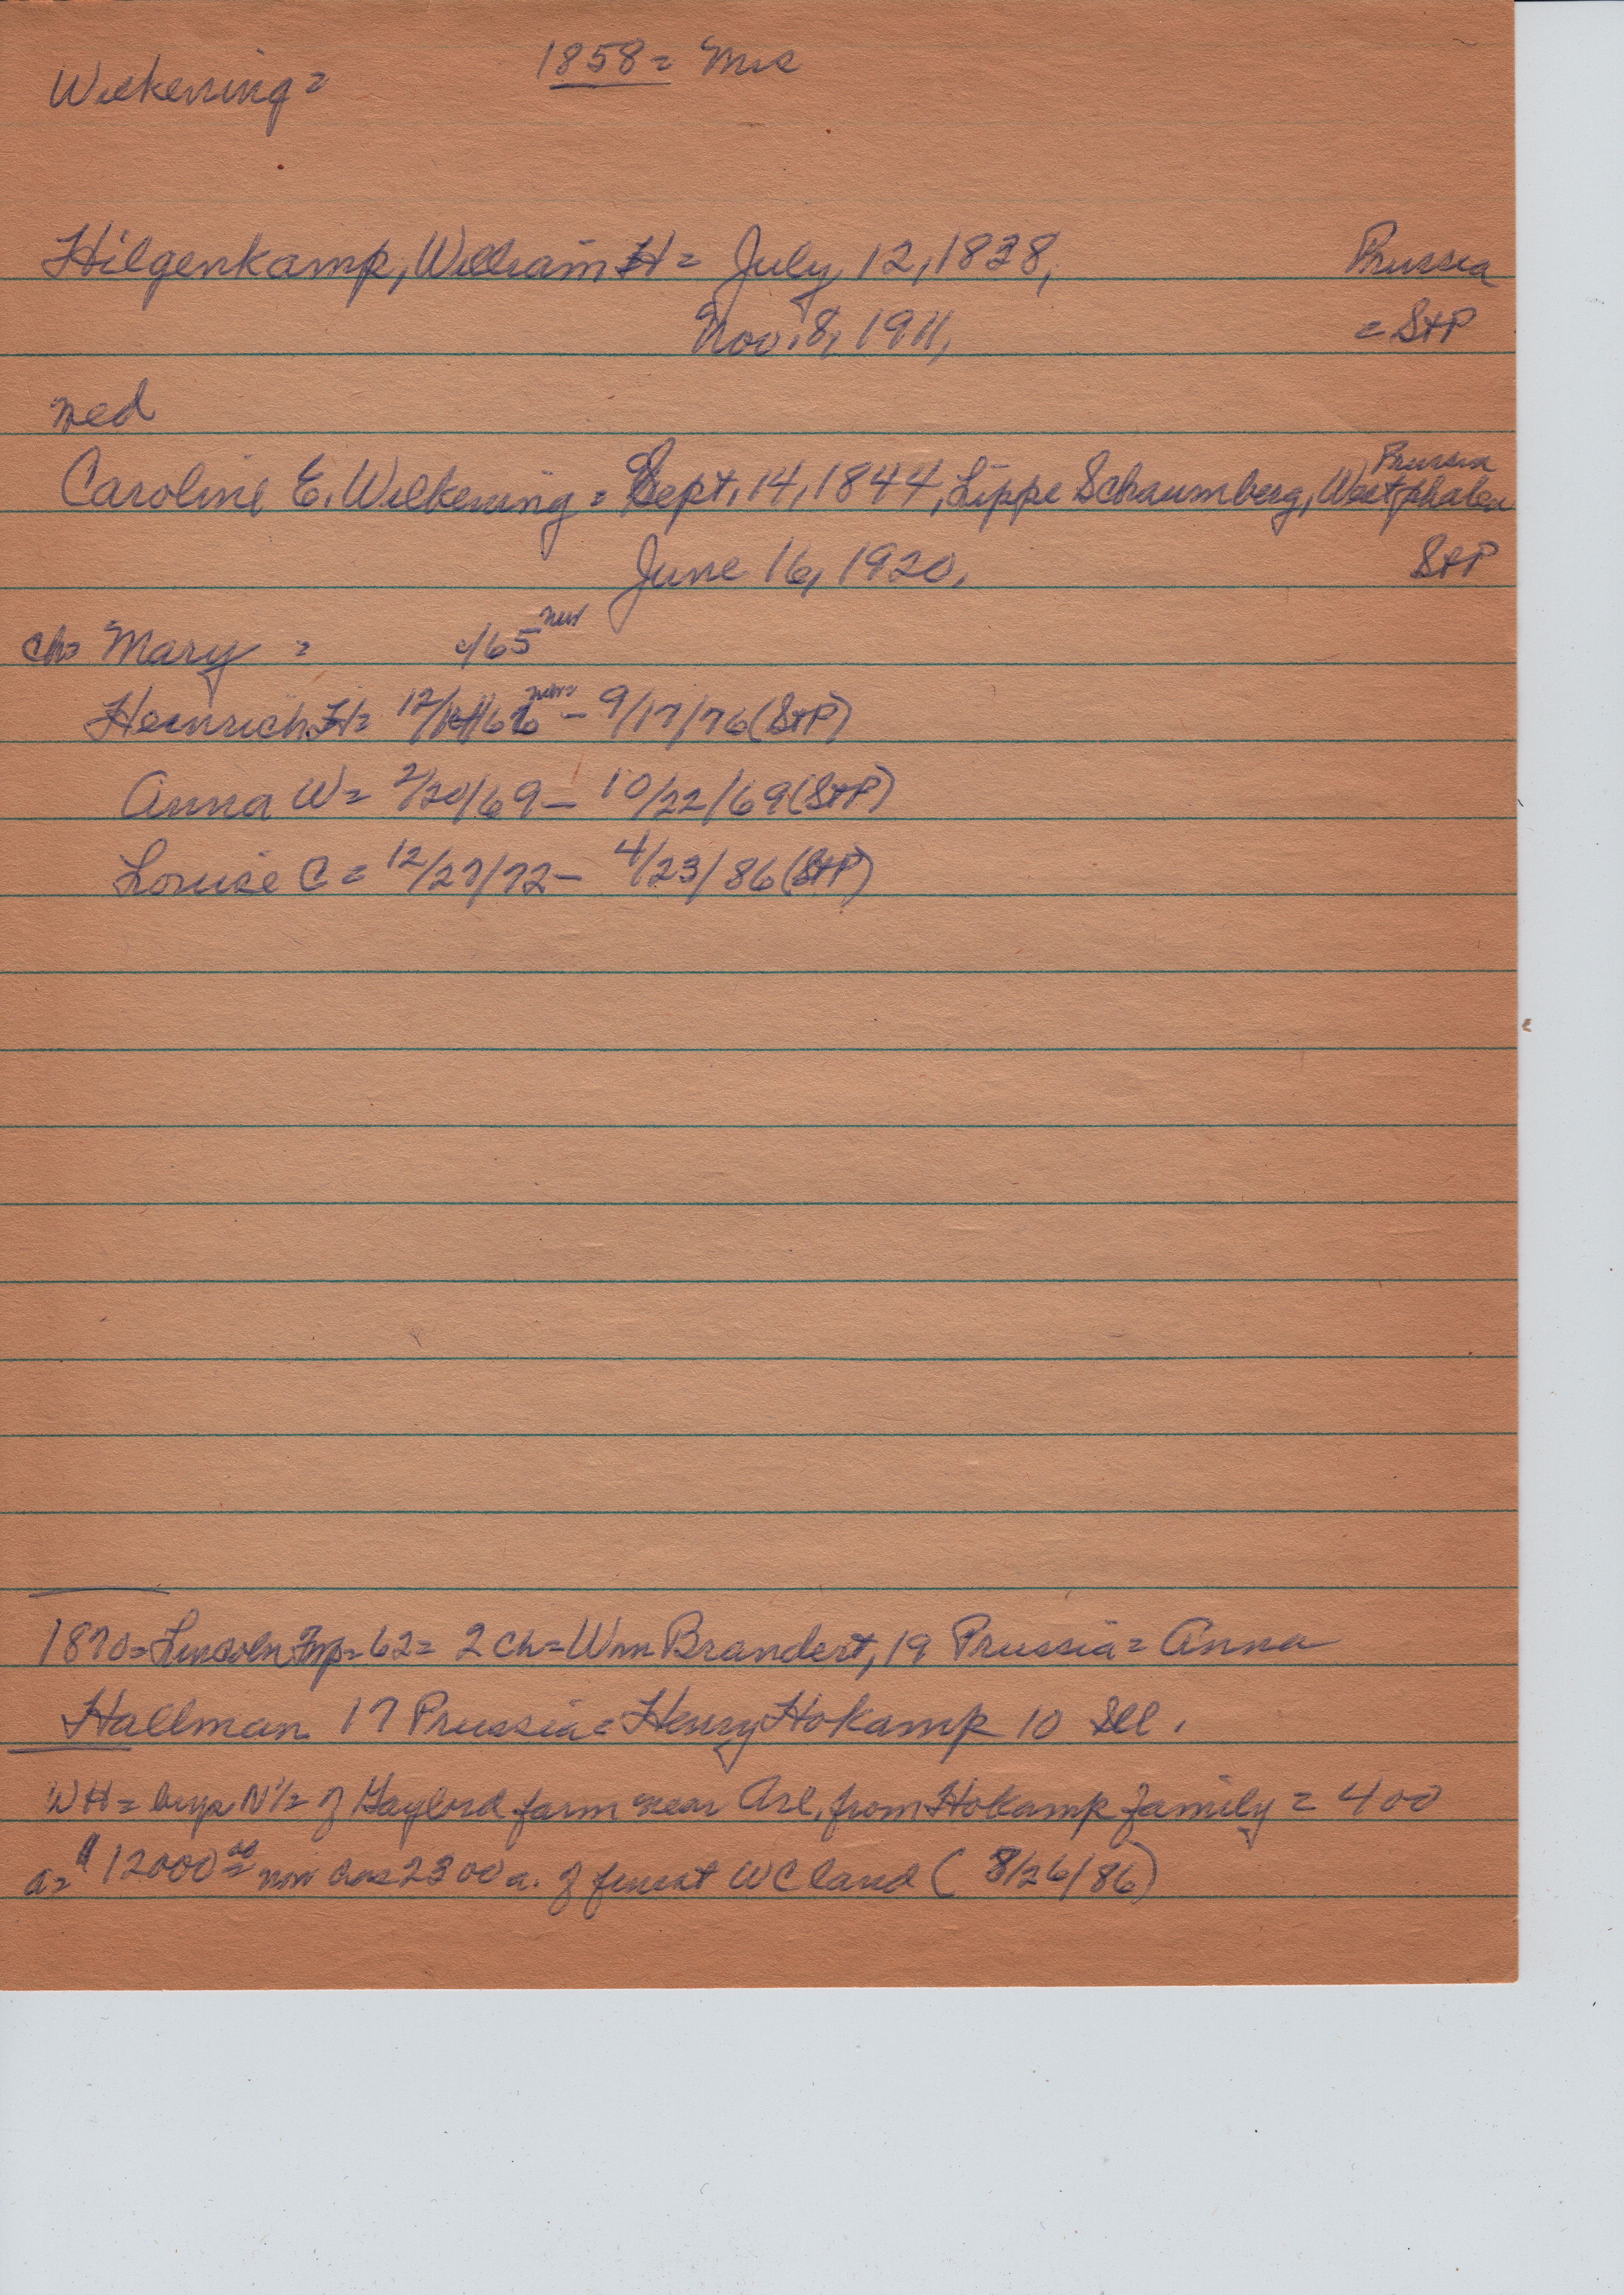 Wilkening =
1858 = Mrs
Hilgenkamp, William H = July 12, 1838, Prussia
Nov. 8, 1911, = StP
wed
Caroline E. Wilkening = Sept. 14, 1844, Lippe Schaumberg, Westphalen Prussia
June 16, 1920, StP
ch = Mary = c/65
Heinrich H = 12/ /66 - 9/17/76 (StP)
Anna W = 2/20/69 - 10/22/69 (StP)
Louise C = 12/27/72 - 4/23/86 (StP)
1870 = Lincoln Twp = 62 = 2 ch = Wm Brandert, 19 Prussia = Anna
Hallman 17 Prussia = Henry Hokamp 10 Ill.
WH = buys N 1/2 of Gaylord farm near Arl. from Hokamp family = 400
a = $12000.00 = now has 2300 a. of finest WC land (8/26/86)